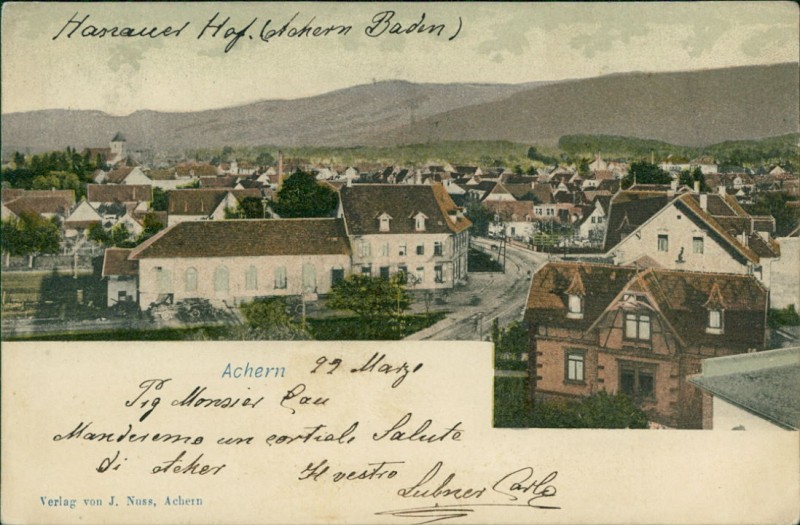 Hanauer Hof. (Achern Baden)
Achern 22 Marzo
Prg Monsier Cau
Manderemo un cortiale Salute
di Acher Il vestro
Lubner Carlo
Verlag von J. Nuss, Achern